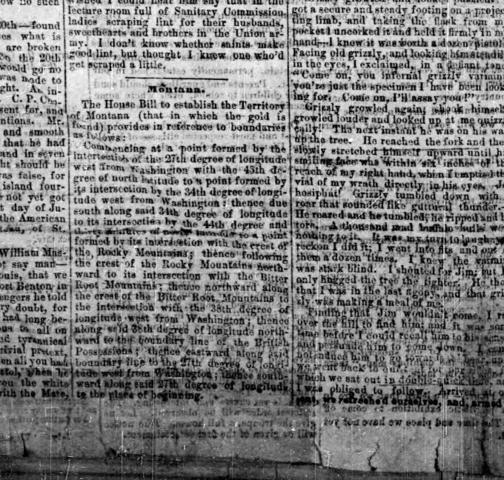 50th—found
oes what is
are broken
on the 20th
would go no
was made to
P. Con-
sent for.
Mr.
and smooth
that he had
and in seven
should be
was false, for
island four-
not yet got
day of Ju-
the American
of St.
William Mas-
not say man—
ouis, that we
ort Benton in
engers he told
ry doubt, for
had long be-
ous to all of
and tyrannical
torial priest.
en all you had
when he
you the white
with the Mate,
wished I could hear him say that in the
lecture room full of Sanitary Commission
ladies scraping lint for their husbands,
sweethearts and brothers in the Union ar-
my. I don't know whether saints make
good lint, but thought I knew one who'd
get scraped a little.
Montana.
The House Bill to establish the Territory
of Montana (that in which the gold is
found) provides in reference to boundaries
as follows:
Commencing at a point formed by the
intersection of the 27th degree of longitude
west from Washington with the 45th de-
gree of north latitude to a point formed by
its intersection by the 34th degree of longi-
tude west from Washington; thence due
south along said 34th degree of longitude
to its intersection by the 44th degree and
to a point
formed by its intersection with the crest of
the Rocky Mountains; thence following
the crest of the Rocky Mountains north-
ward to its intersection with the Bitter
Root Mountains; thence northward along
the crest of the Bitter Root Mountains to
the intersection with the 38th degree of
longitude west from Washington; thence
along said 38th degree of longitude north-
ward to the boundary line of the British
Possessions; thence eastward along said
boundary line to the 27th degree of longi-
tude west from Washington; thence south-
ward along said 27th degree of longitude,
to the place of beginning.
got a secure and steady footing on a project-
ing limb, and taking the flask from my
pocket I uncorked it and held it firmly in my
hand—I knew it was worth a dozen pistols.
Facing old grizzly, and looking him steadily
in the eyes, I exclaimed, in a
"Come on, you infernal grizzly varmint,
you're just the specimen I have been look-
ing for. Come on, I'll assay you
Grisly growled again, shook himself,
growled louder and looked up at me quizzi-
cally! The next instant he was on his way
up the tree. He reached the fork and then
slowly stretched himself upward until his
smiling face was within six inches of the
reach of my right hand, when I emptied the
vial of my wrath directly in his eyes,
Grizzly tumbled down with a
roar that sounded like guttural thunder.
He roared and he tumbled, he ripped and he
tore. A thousand mad buffalo bulls was
nothing to it. It was my turn to laugh, and I
reckon I did it. I went into fits, and out of
them a dozen times. I knew the varmint
was stark blind. I shouted for Jim, but he
only hugged the tree the tighter. He thought
that I was in the last agony, and that griz-
sly was making a meal of me.
Finding that Jim wouldn't come, I went
over the hill to find him; and it was some
time before I could recall him to his
him to come down.
induce him to go
we went back to our
which we sat out in double-quick time.
was obliged to follow. Arrived at our
we refreshed ourselves, and, armed